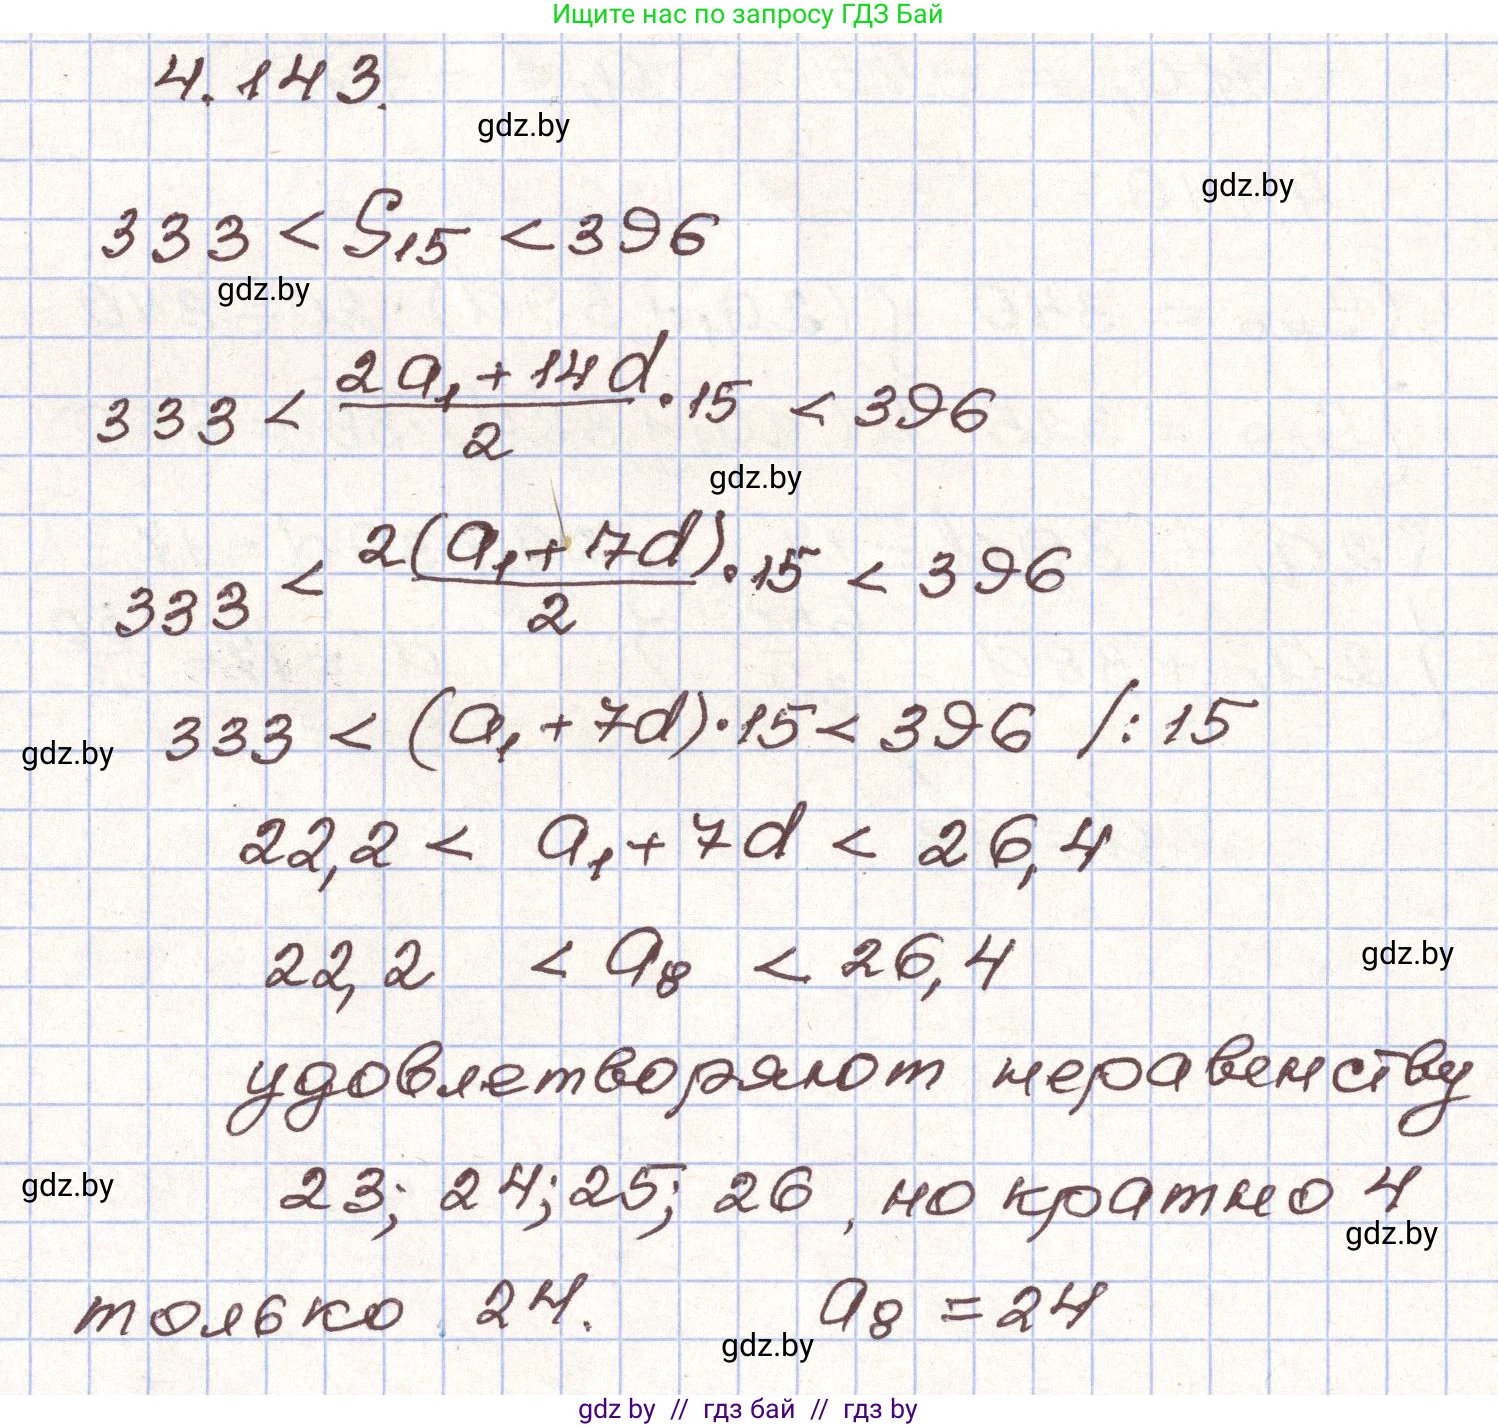 Ищите нас по запросу ГДЗ Бай
4.143.
gdz.by
gdz.by
333 < S₁₅ < 396
gdz.by
333 < (2a₁ + 14d)/2 · 15 < 396
gdz.by
333 < 2(a₁ + 7d)/2 · 15 < 396
333 < (a₁ + 7d) · 15 < 396 /: 15
gdz.by
22,2 < a₁ + 7d < 26,4
22,2 < a₈ < 26,4
gdz.by
удовлетворяют неравенству
23; 24; 25; 26, но кратно 4
gdz.by
gdz.by
только 24. a₈ = 24
gdz.by
gdz by // гдз бай // гдз by